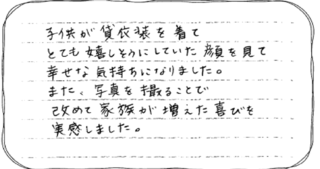 子供が貸衣装を着て
とても嬉しそうにしていた顔を見て
幸せな気持ちになりました。
また、写真を撮ることで
改めて家族が増えた喜びを
実感しました。